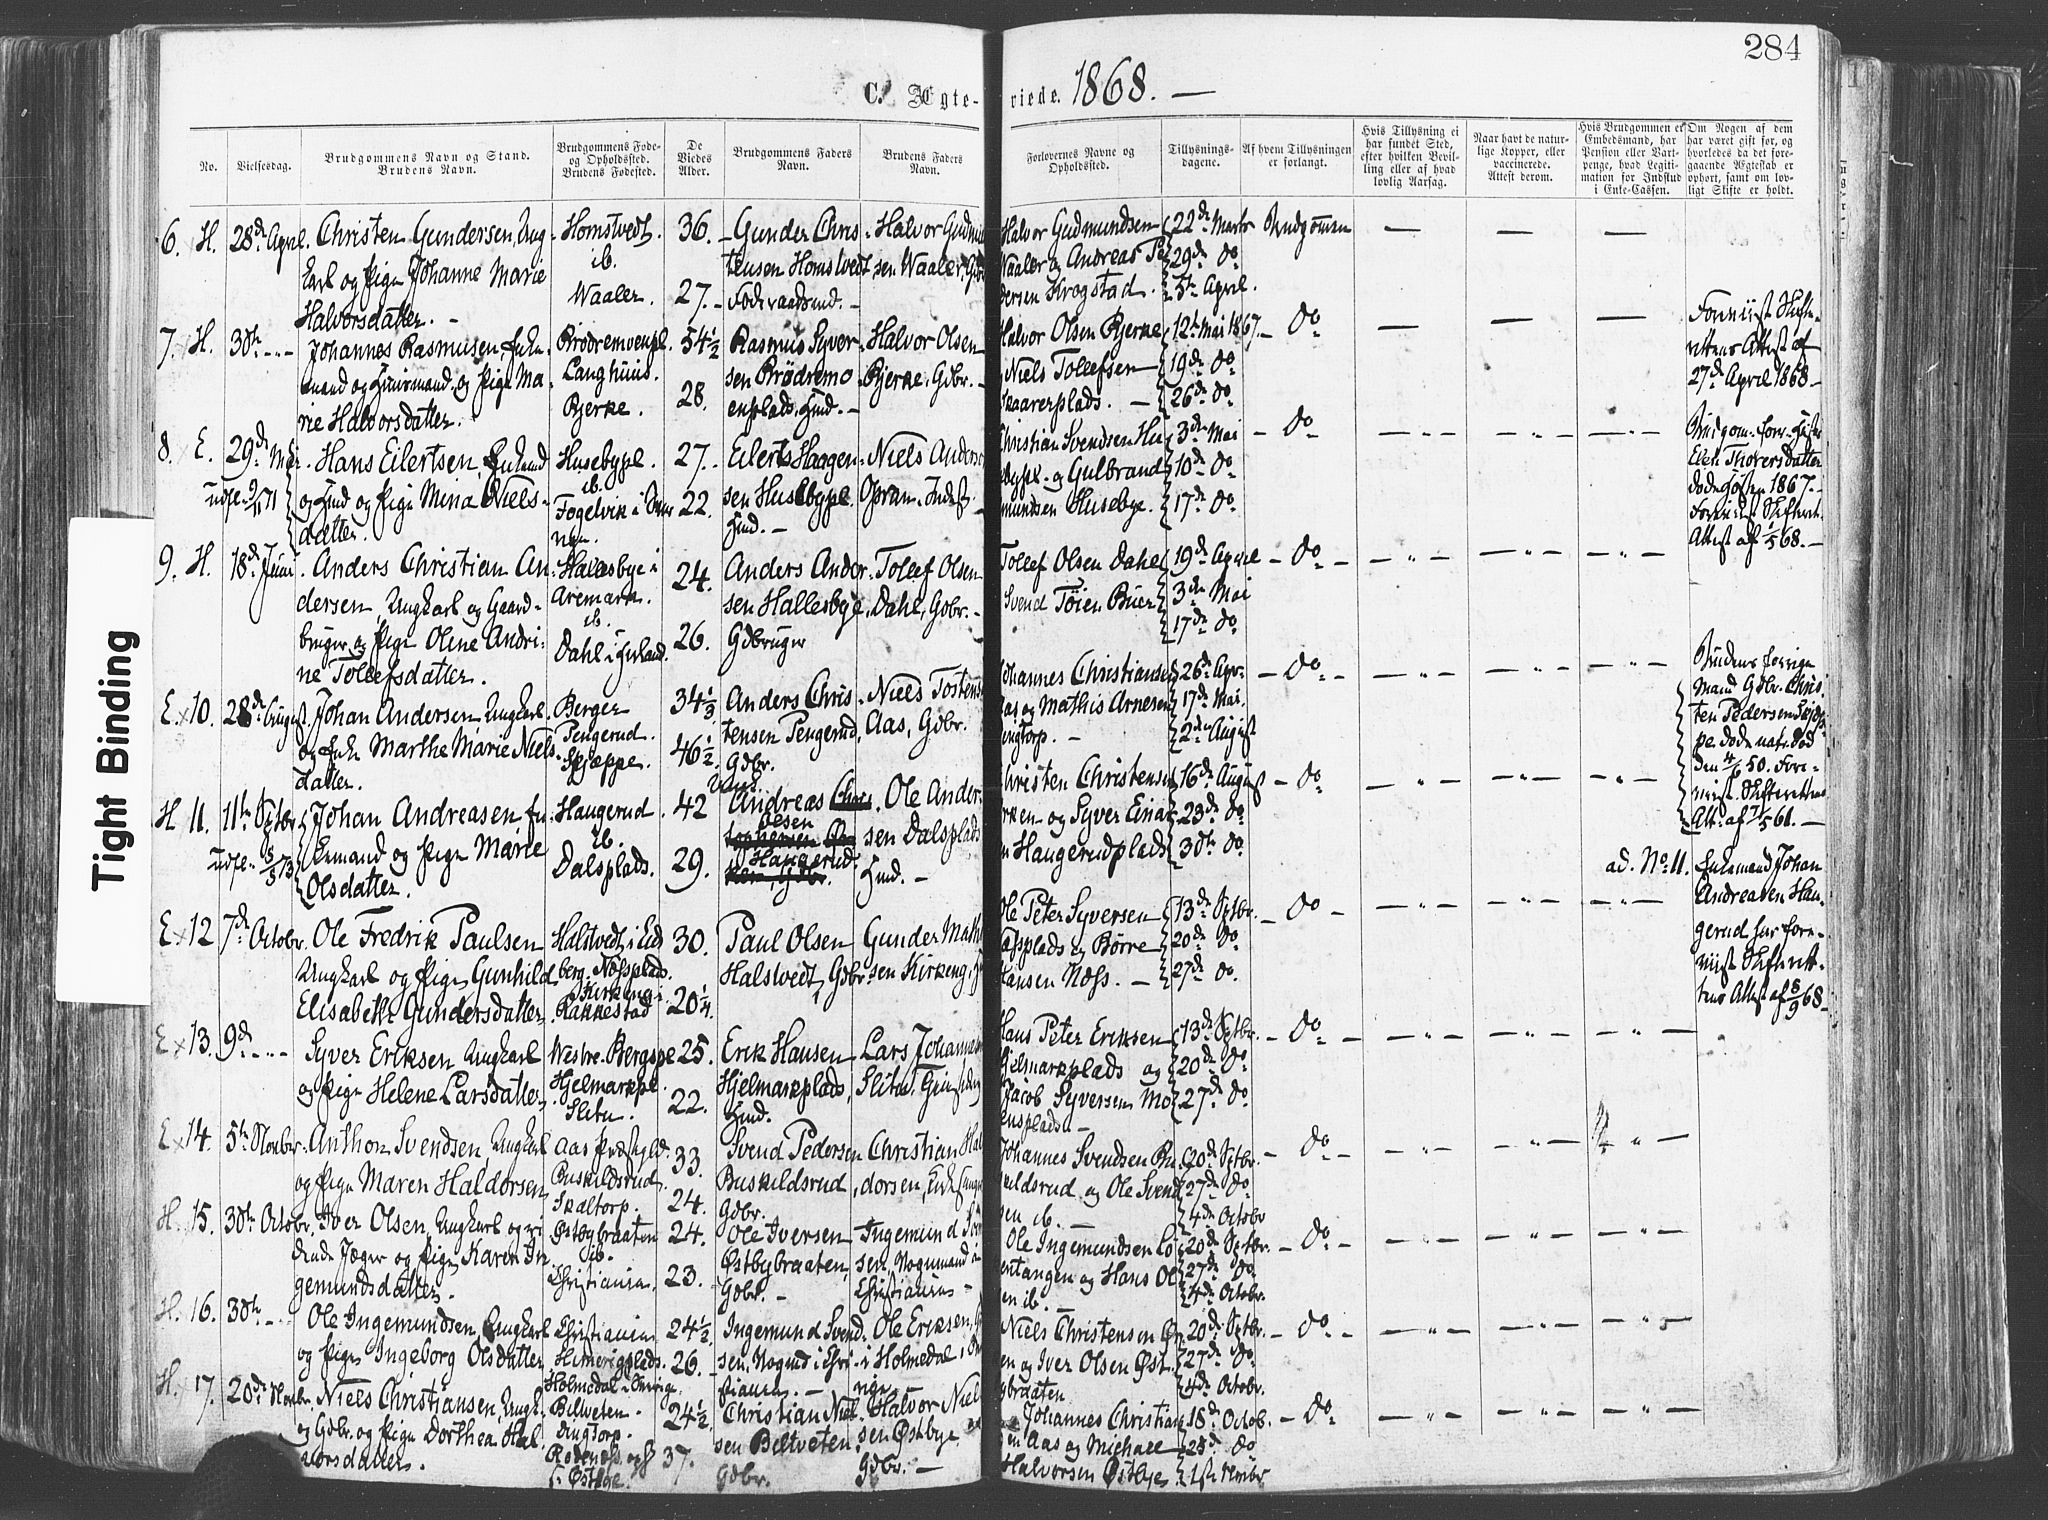 284
C. Ægteviede. 1868. —
No.
Vielsesdag.
Brudgommens Navn og Stand.
Brudens Navn.
Brudgommens Føde-
og Opholdssted.
Brudens Fødested.
De
Viedes
Alder.
Brudgommens Faders
Navn.
Brudens Faders
Navn.
Forlovernes Navne og
Opholdssted.
Tillysnings-
dagene.
Af hvem Tillysningen
er forlangt.
Hvis Tillysning ei
har fundet Sted,
efter hvilken Bevil-
ling eller af hvad
lovlig Aarsag.
Naar havt de natur-
lige Kopper, eller
vaccinerede.
Attest derom.
Hvis Brudgommen er
Embedsmand, har
Pension eller Vart-
penge, hvad Legiti-
mation for Indskud
i Enke-Cassen.
Om Nogen af dem
har været gift før, og
hvorledes da det fore-
gaaende Ægteskab er
ophørt, samt om lov-
ligt Skifte er holdt.
6. H. 28de April.
Christen Gundersen, Ung-
karl og Pige Johanne Marie
Halvorsdatter. —
Homstvedt.
ib.
Waaler.
36.
27.
Gunder Chris-
tensen Homstvedt
Foderaadsmd. —
Halvor Gudmun
sen Waaler, Gdbr
Halvor Gudmundsen
Waaler og Andreas Pe
dersen Krogstad.
22de Marts
29de do
5te April.
Brudgommen
7. H. 30te
Johannes Rasmusen, Enke-
mand og Huusmand, og Pige Ma-
rie Halvorsdatter.
Brødremoenpl.
Langhuus.
Bjerke.
54 1/2
28.
Rasmus Syver-
sen Brødremo-
enplads, Hmd. —
Halvor Olsen
Bjerke, Gdbr. —
Halvor Olsen Bjerke
Niels Tollefsen
Skaarerplads. —
12te Mai 1867.
19de do
26de do
do
Foreviist Skifte-
rettens Attest af
27de April 1868 —
8. E. 29de Mai
udfl. 9/11 71
Hans Eilertsen, Enkemd
og Hmd og Pige Mina Niels-
datter.
Husebypl.
ib.
Fogelvik i Sver
rige.
27.
22.
Eilert Haagen-
sen Husebypl.
Hmd. —
Niels Anders
Opram, Indest
Christian Svendsen Hu
sebypl. og Gulbrand
mundsen Husebye.
3de Mai
10de do
17de do
do
Brudgom. forr. Hustru
Ellen Thorersdatter
døde Høsten 1867. —
Foreviist Skifteret.
Attest af 1/5 68. —
9. H. 18de Juni
Anders Christian An-
dersen, Ungkarl og Gaard-
bruger og Pige Olene Andri-
ne Tollefsdatter.
Hallesbye i
Aremark.
ib.
Dahl i Enland.
24.
26.
Anders Ander-
sen Hallesbye,
Gdbruger
Tollef Olsen
Dahl, Gdbr. —
Tollef Olsen Dahl
Svend Tøien Buer
19de April
3de Mai
17de do
do
E. 10. 28de August
Johan Andersen, Ungkarl
og Enke Marthe Marie Niels-
datter.
Berger
Pengerud.
Skjeppe.
34 1/3
46 1/2
Anders Chris-
tensen Pengerud,
Gdbr.
Niels Tostens
Aas, Gdbr.
Johannes Christiansen
Aas og Mathis Arnesen
Engtorp. —
26de Apr.
17de Mai.
2de August
do
Brudens forrige
Mand Gdbr. Chris
ten Pedersen Skjep-
pe døde natr. Død
den 4/6 50. Fore-
viist Skifterettens
Att. af 7/5 61. —
H 11. 11te Septbr.
udfl. 5/5 73
Johan Andreasen En-
kemand og Pige Marie
Olsdatter.
Haugerud
ib.
Dalsplads.
42
29.
Andreas
Olsen
Haugerud
Ole Ander-
sen Dalsplads
Hmd. —
Christen Christensen
rken og Syver Einar
n Haugerudplads
16de August
23de do
30te do
do
ad. No 11. Enkemand Johan
Andreasen Hau-
gerud har fore-
viist Skifteret-
tens Attest af 8/9 68 —
E 12 7de Octobr.
Ole Fredrik Paulsen
Ungkarl og Pige Gunhild
Elisabeth Gundersdatter
Halstvedt i Eid
berg. Næssplads.
Kirkeng i
Rakkestad
30.
20 1/4
Paul Olsen
Halstvedt, Gdbr
Gunder Math
sen Kirkeng,
Ole Peter Syversen
Næssplads og Børre
Hansen Næss. —
13de Septbr.
20de do
27de do.
do
E 13. 9de
Syver Eriksen Ungkarl
og Pige Helene Larsdatter.
Westre Bergspl
Hjelmarkpl.
Slitu.
25.
22.
Erik Hansen
Hjelmarkplads,
Hmd.
Lars Johannes
Slitu,
Hans Peter Eriksen
Hjelmarkplads og
Jacob Syversen Mo
ensplads —
13de Septbr.
20de do
27de do
do
E 14. 5te Novbr.
Anthon Svendsen, Ungkarl
og Pige Maren Haldorsen
Aas
Buskildsrud
Skaltorp.
33.
24.
Svend Pedersen
Buskildsrud,
Gdbr.
Christian Hal
dorsen,
Johannes Svendsen Bu
skildsrud og Ole Svend
sen ib. —
20de Septbr.
27de do
4de Octobr
do
H. 15. 30te Octobr.
Iver Olsen, Ungkarl og ri-
dende Jæger og Pige Karen In-
gemundsdatter.
Østbybraaten
ib.
Christiania.
24.
23.
Ole Iversen
Østbybraaten,
Gdbr. —
Ingemund Sven
sen, Vognmand i
Christiania —
Ole Ingemundsen Lø
entangen og Hans Ol
en ib. —
20de Septbr.
27de do
4de Octobr.
do
H. 16. 30te
Ole Ingemundsen, Ungkarl
og Pige Ingeborg Olsdatter
Christiania
Himerigplads.
Holmedal i Sverige
24 1/2
26.
Ingemund Svend-
sen, Vognmd i Chri-
stiania. —
Ole Eriksen,
i Holmedal i Sve
rige.
Niels Christensen Øs
en og Iver Olsen Øst
bybraaten
20de Septbr.
27de do
4de Octobr.
do
H. 17. 20de Novbr.
Niels Christiansen, Ungk.
og Gdbr. og Pige Dorthea Hal-
vorsdatter.
Bilveten.
Engtorp.
Rødenæs
Østbye.
24 1/2
37.
Christian Niel-
sen Biltveten,
Gdbr.
Halvor Niel
sen Østbye
Gdbr. —
Johannes Christian
sen Aas og Michael
Halvorsen Østbye
18de Octob.
25de do
1ste Novbr
do
Tight Binding